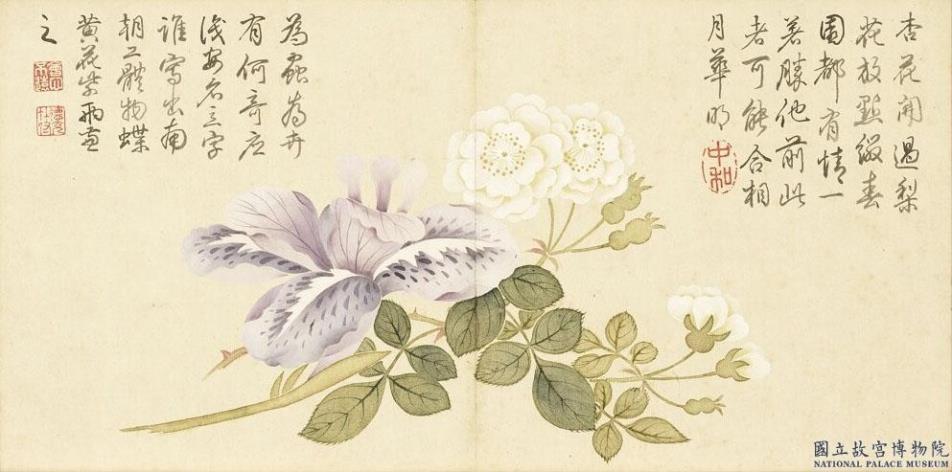 杏花開過梨
花放點綴春
園都有情一
著勝他前此
者可能合相
月華明
中和
為蟲為卉
有何奇應
安名字
誰寫出南
朝工體物蝶
黃花紫兩兼
之
國立故宮博物院
NATIONAL PALACE MUSEUM